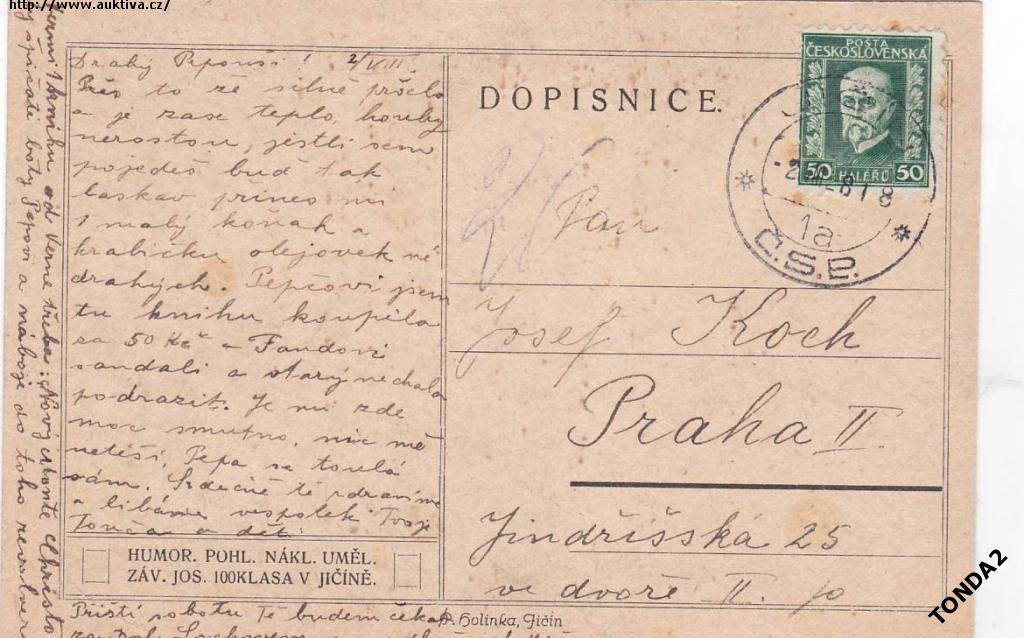 http://www.auktiva.cz/
Drahý Pepouši! 2/VIII.
Přes to že silně pršelo
a je zase teplo, houby
nerostou, jestli sem
pojedeš buď tak
laskav přines mi
1 malý koňak a
krabičku olejovek né
drahých. Pepčovi jsem
tu knihu koupila
za 50 Kč a Fandovi
sandali a starý nechala
podrazit. Je mi zde
moc smutno, nic mě
netěší, Pepa se toulá
sám. Srdečně tě zdravíme
a líbáme vespolek Tvoje
Tonča a děti
HUMOR. POHL. NÁKL. UMĚL.
ZÁV. JOS. 100KLASA V JIČÍNĚ.
Příští sobotu tě budem čekat
1 knihu od Verne třeba: Nový Monte Christo
špičaté boty Pepovi a náboje do toho revolveru
DOPISNICE.
POŠTA
ČESKOSLOVENSKÁ
50 HALÉŘŮ 50
1a
Č.S.P.
Pan
Josef Koch
Praha II.
Jindřišská 25
ve dvoře II. p
B. Holinka, Jičín
TONDA2